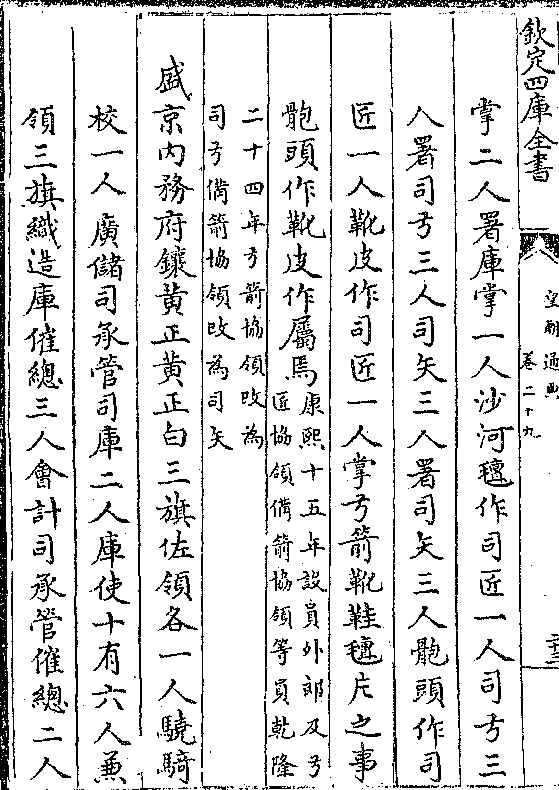 欽定四庫全書
皇朝通典
卷二十九
三十三
掌二人署庫掌一人沙河氊作司匠一人司弓三
人署司弓三人司矢三人署司矢三人骲頭作司
匠一人靴皮作司匠一人掌弓箭靴鞋氊片之事
骲頭作靴皮作屬焉康熙十五年設員外郎及弓
匠協領備箭協領等員乾隆
二十四年弓箭協領改為
司弓備箭協領改為司矢
盛京内務府鑲黄正黄正白三旗佐領各一人驍騎
校一人廣儲司承管司庫二人庫使十有六人兼
領三旗織造庫催總三人會計司承管催總二人